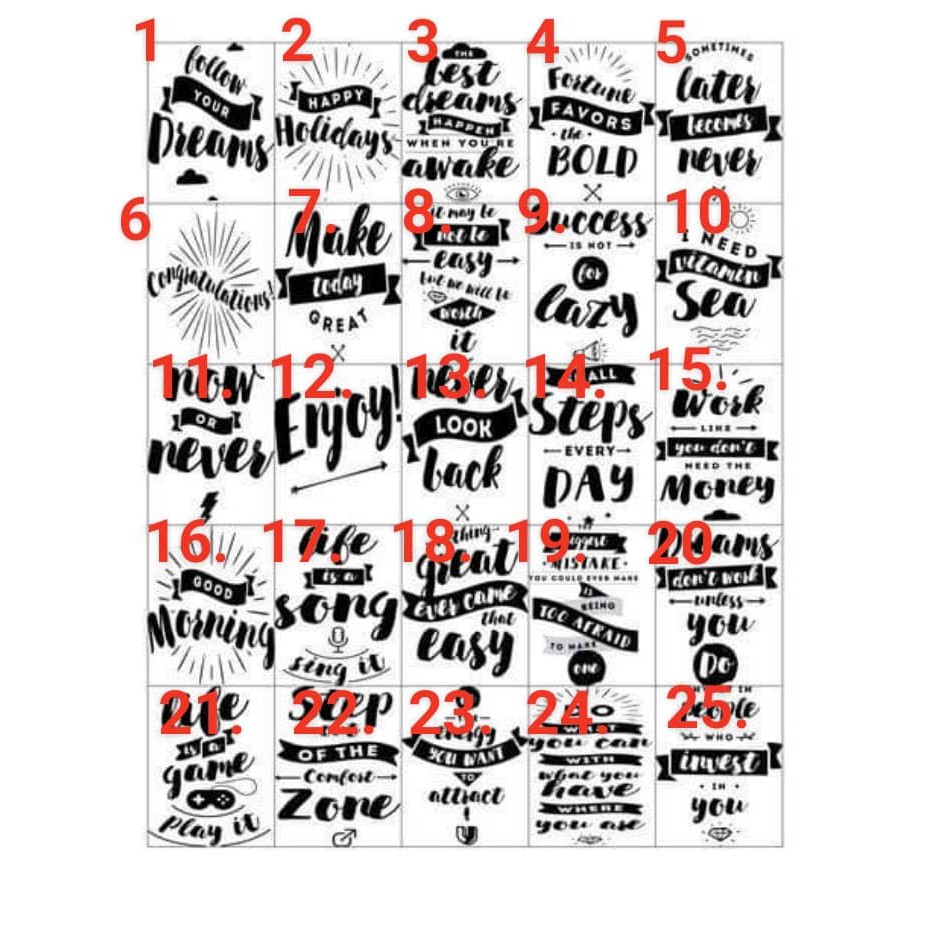 1
follow
YOUR
Dreams
2
HAPPY
Holidays
3
THE
best
dreams
HAPPEN
WHEN YOU'RE
awake
4
Fortune
FAVORS
the
BOLD
5
SOMETIMES
later
becomes
never
6
Congratulations!
7.
Make
today
GREAT
8.
it may be
not be
easy
but we will be
worth
it
9.
Success
IS NOT
for
lazy
10
I NEED
vitamin
Sea
11.
now
OR
never
12.
Enjoy!
13.
never
LOOK
back
14.
Steps
EVERY
DAY
15.
Work
LIKE
you don't
NEED THE
Money
16.
GOOD
Morning
17.
life
is a
song
sing it
18.
great
ever came
that
easy
19.
MISTAKE
YOU COULD EVER MAKE
IS
BEING
TOO AFRAID
TO MAKE
one
20
Dreams
don't work
unless
you
Do
21.
life
is a
game
play it
22.
Step
OF THE
Comfort
Zone
23.
energy
YOU WANT
TO
attract
24.
DO
WHAT
you can
WITH
what you
have
WHERE
you are
25.
IN
people
WHO
invest
IN
you